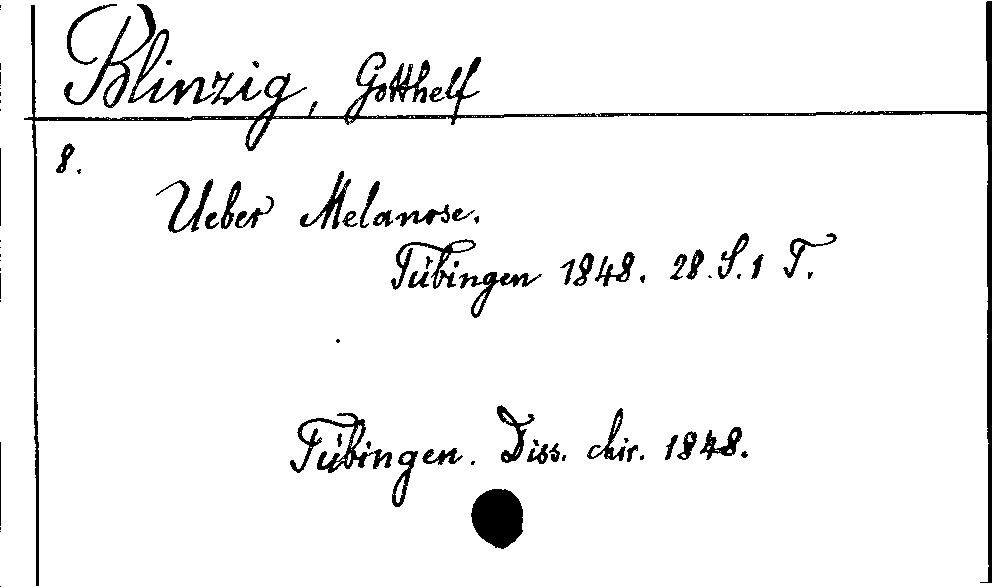 Blinzig, Gotthelf
8.
Ueber Melanose.
Tübingen 1848. 28. S. 1 T.
Tübingen. Diss. chir. 1848.